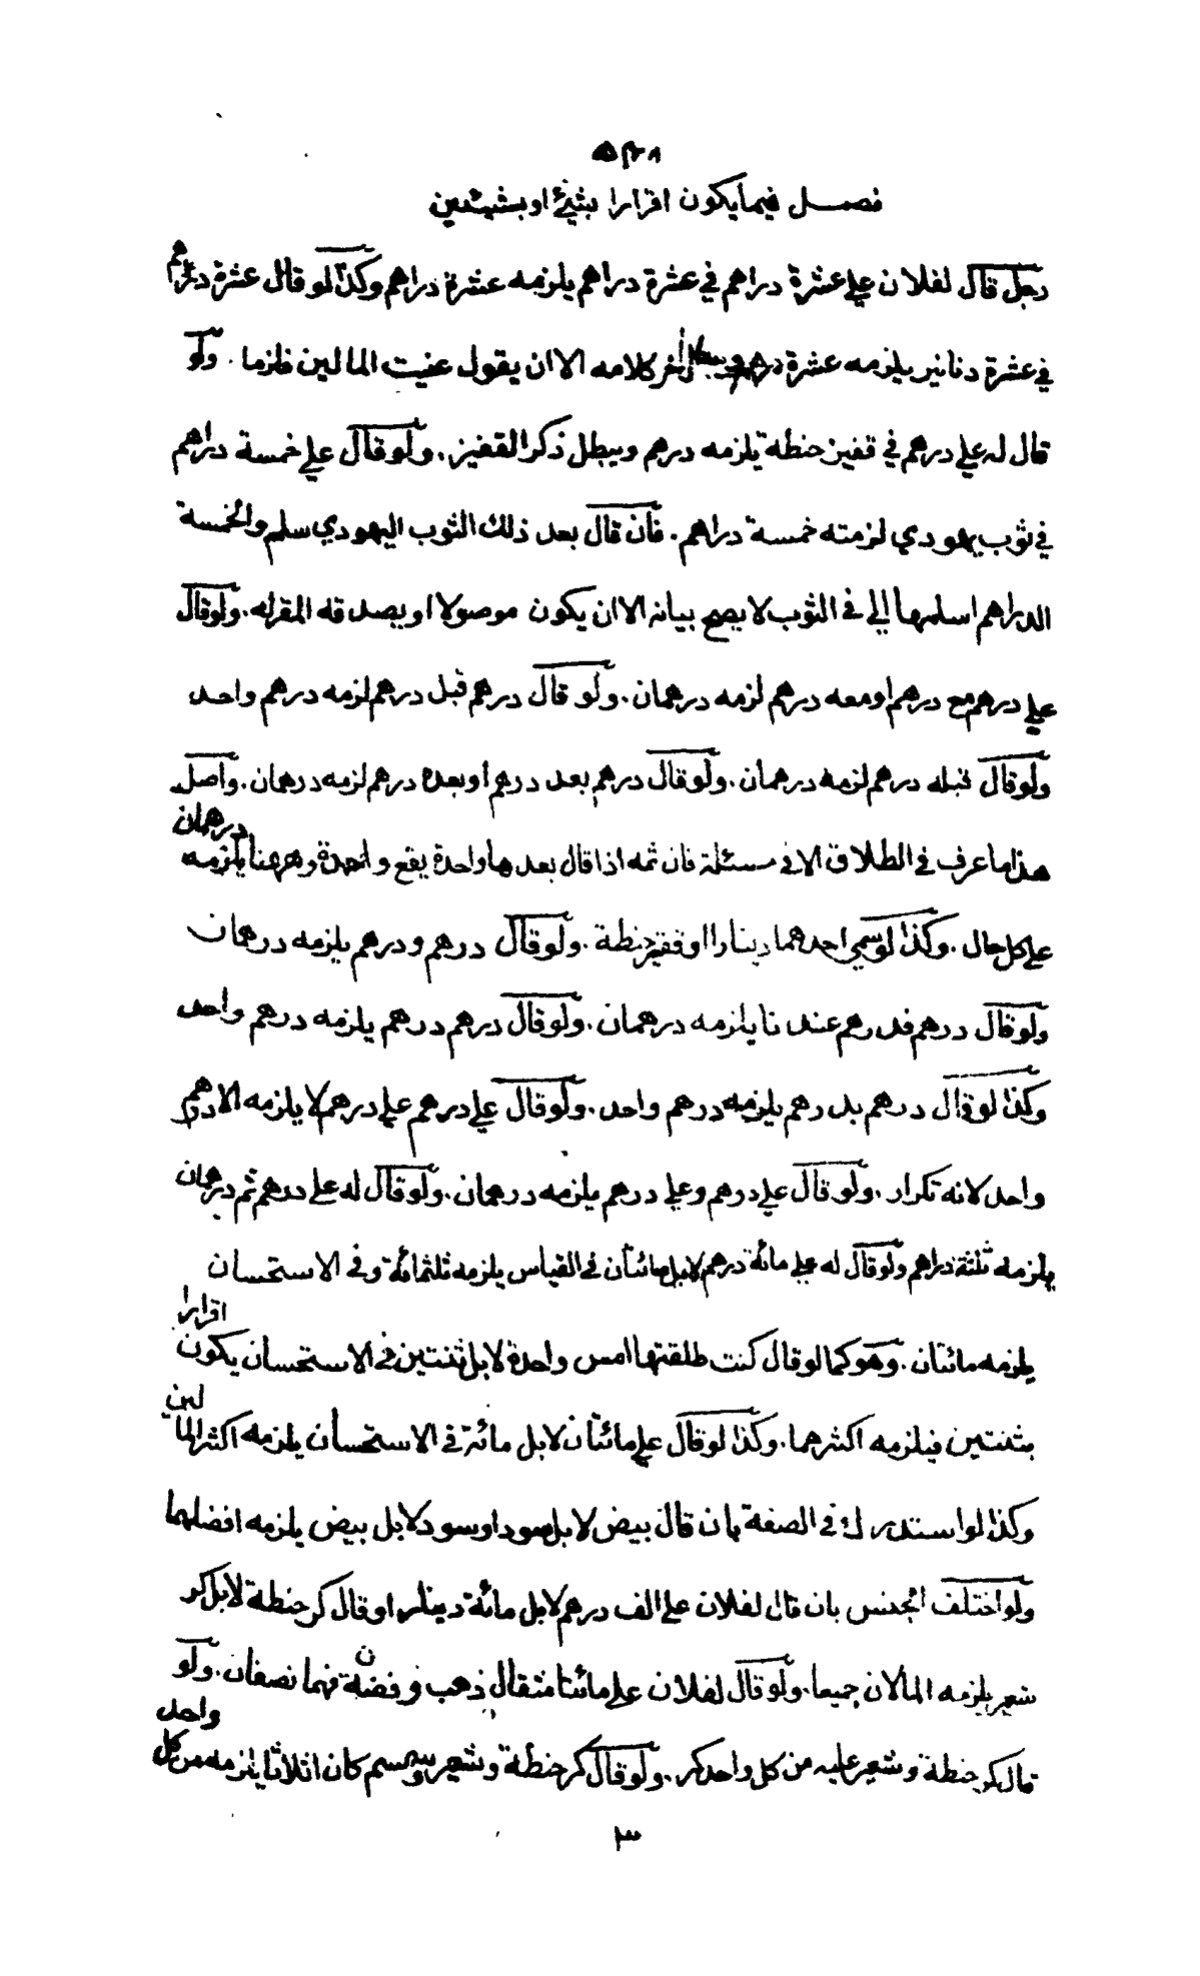 فصل فيما يكون اقرارا بشيئ او بشيئين
رجل قال لفلان علي عشرة دراهم في عشرة دراهم يلزمه عشرة دراهم وكذا لو قال عشرة دراهم
في عشرة دنانير يلزمه عشرة دراهم ويبطل آخر كلامه الا ان يقول عنيت المالين فلزما . ولو
قال له علي درهم في قفيز حنطة يلزمه درهم ويبطل ذكر القفيز . ولو قال علي خمسة دراهم
في ثوب يهودي لزمته خمسة دراهم . فان قال بعد ذلك الثوب اليهودي سلم والخمسة
الدراهم اسلمها الي في الثوب لا يصح بيانه الا ان يكون موصولا او يصدقه المقر له . ولو قال
علي درهم مع درهم او معه درهم لزمه درهمان . ولو قال درهم قبل درهم لزمه درهم واحد
ولو قال قبله درهم لزمه درهمان . ولو قال درهم بعد درهم او بعده درهم لزمه درهمان . واصل
هذا ما عرف في الطلاق الا في مسئلة فان ثمه اذا قال بعدها واحدة يقع واحدة وههنا يلزمه درهمان
على كل حال . وكذا لو سمي احدهما دينارا او قفيز حنطة . ولو قال درهم ودرهم يلزمه درهمان
ولو قال درهم فدرهم عندنا يلزمه درهمان . ولو قال درهم درهم يلزمه درهم واحد
وكذا لو قال درهم بدرهم يلزمه درهم واحد . ولو قال علي درهم علي درهم لا يلزمه الا درهم
واحد لانه تكرار . ولو قال علي درهم وعلي درهم يلزمه درهمان . ولو قال له علي درهم ثم درهمان
يلزمه ثلثة دراهم ولو قال له علي مائة درهم لا بل مائتان في القياس يلزمه ثلثمائة وفي الاستحسان
يلزمه مائتان . وهو كما لو قال كنت طلقتها امس واحدة لا بل ثنتين في الاستحسان يكون اقرارا
بثنتين فيلزمه اكثرهما . وكذا لو قال علي مائتان لا بل مائة في الاستحسان يلزمه اكثر المالين
وكذا لو استدرك في الصفة بان قال بيض لا بل سود او سود لا بل بيض يلزمه افضلهما
ولو اختلف الجنس بان قال لفلان علي الف درهم لا بل مائة دينار او قال كر حنطة لا بل كر
شعير يلزمه المالان جميعا . ولو قال لفلان علي مائتا مثقال ذهب وفضة فهما نصفان . ولو
قال كر حنطة وشعير عليه من كل واحد كر . ولو قال كر حنطة وشعير وسمسم كان اثلاثا يلزمه من كل واحد
٣